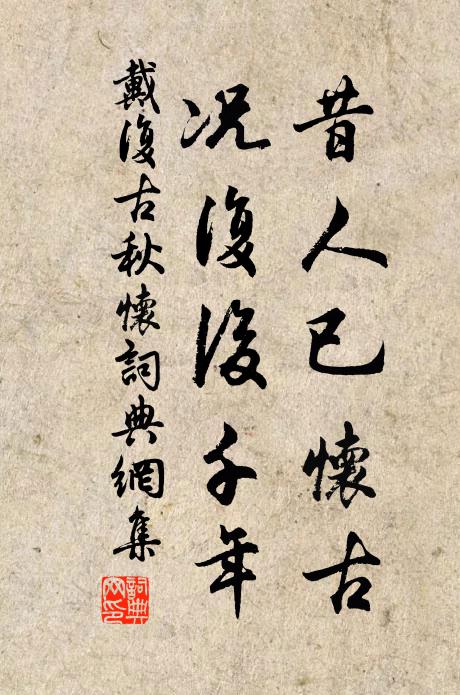 昔人已懷古
況復後千年
戴復古秋懷詞典網集
詞典網印